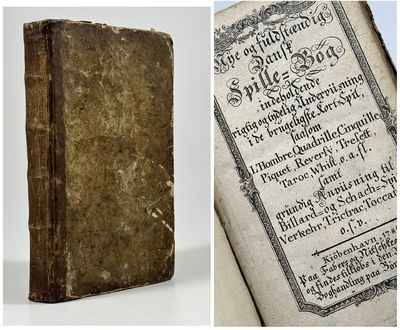 Nye og fuldstændig
Dansk
Spille-Bog
indeholdende
rigtig og tydelig Underviisning
i de brugeligste Kort-Spil,
saasom
L'Hombre, Quadrille, Cinquille
Piquet, Reversy, Tresett,
Taroc, Whist, o.a.fl.
samt
grundig Anviisning til
Billard- og Schach-Spil
Verkehr, Trictrac, Toccat
o.s.v.
Kiöbenhavn, 17
Paa Fabers og
og findes tilkiöbs i den
Boghandling paa